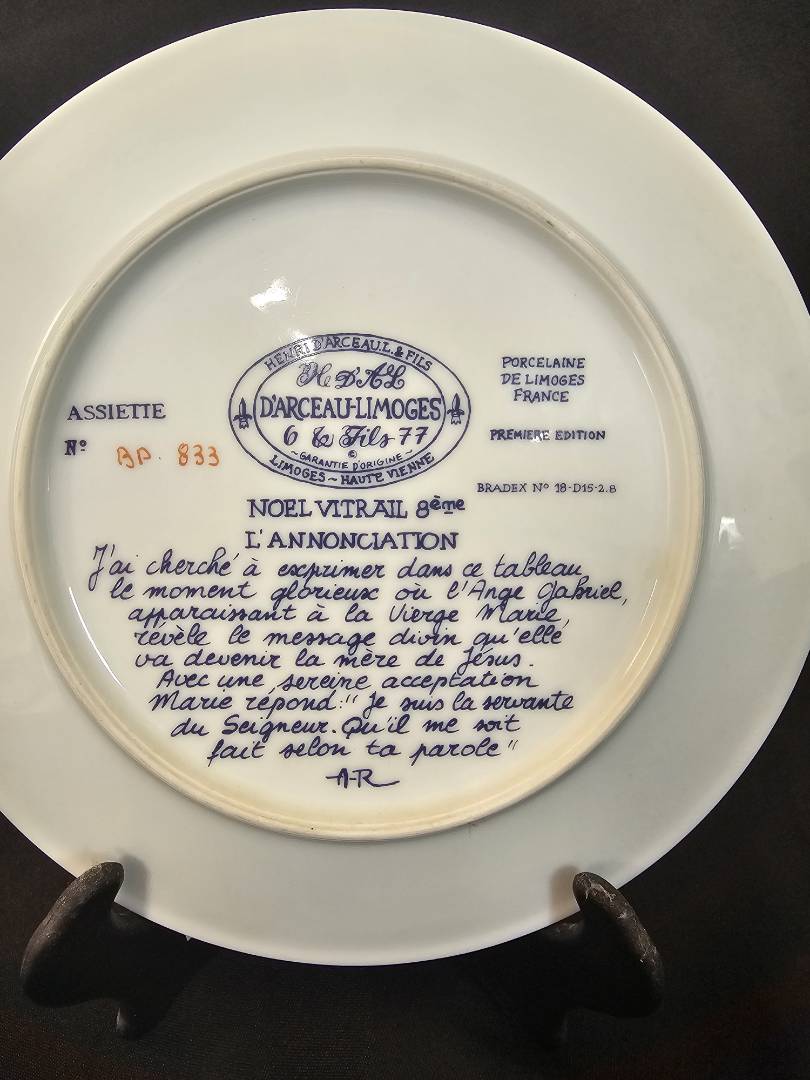 HENRI D'ARCEAU.L. & FILS
H D'AL
D'ARCEAU-LIMOGES
6 & Fils 77
~GARANTIE D'ORIGINE~
©
LIMOGES ~ HAUTE VIENNE
ASSIETTE
No
PORCELAINE
DE LIMOGES
FRANCE
PREMIERE EDITION
BRADEX No 18-D15-2.8
NOEL VITRAIL 8ème
L'ANNONCIATION
J'ai cherché à exprimer dans ce tableau
le moment glorieux où l'Ange Gabriel,
apparaissant à la Vierge Marie,
révèle le message divin qu'elle
va devenir la mère de Jésus.
Avec une sereine acceptation
Marie répond: "Je suis la servante
du Seigneur. Qu'il me soit
fait selon ta parole"
A-R
833